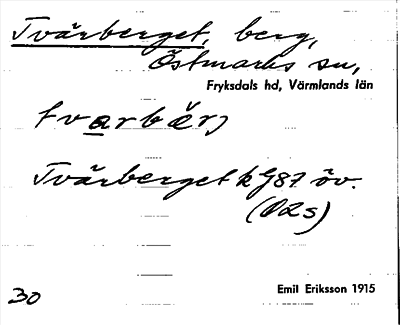 Tvärberget, berg,
Östmarks sn,
Fryksdals hd, Värmlands län
Tvärberget k G87 öv.
(D2s)
30
Emil Eriksson 1915